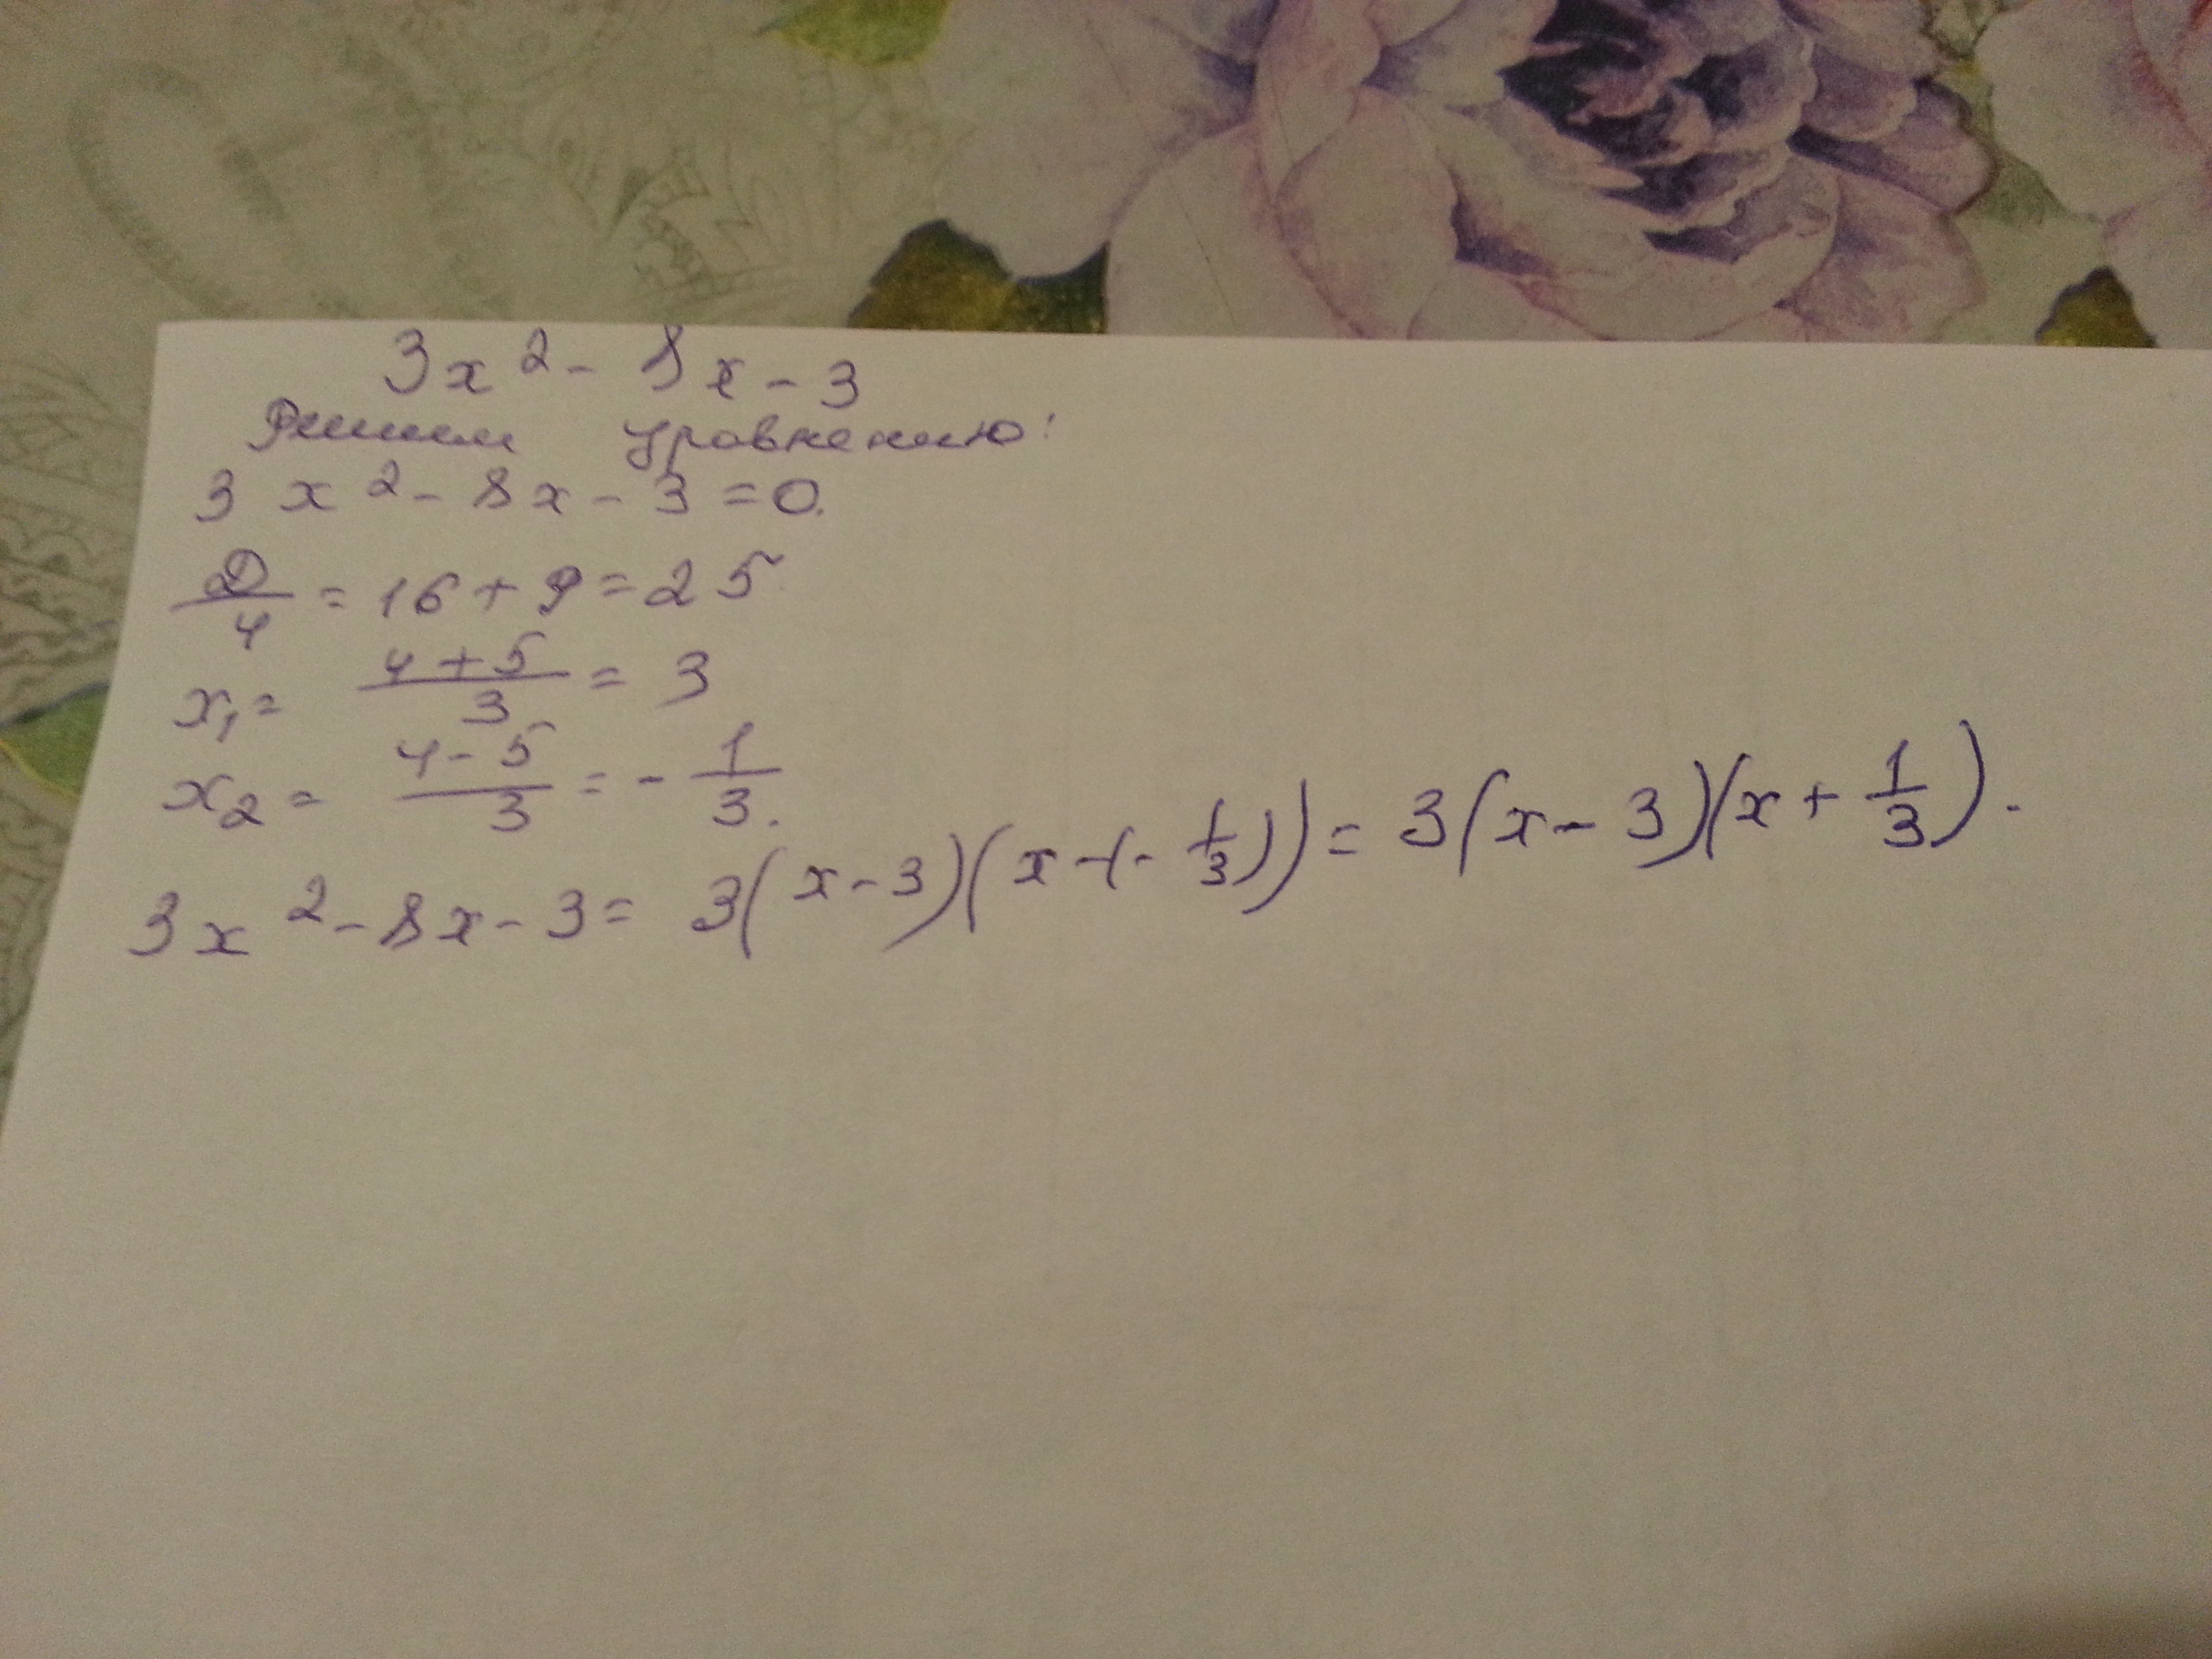 3x² - 8x - 3
Решим уравнению:
3x² - 8x - 3 = 0.
D/4 = 16 + 9 = 25
x₁ = (4+5)/3 = 3
x₂ = (4-5)/3 = -1/3.
3x² - 8x - 3 = 3(x-3)(x-(-1/3)) = 3(x-3)(x+1/3).